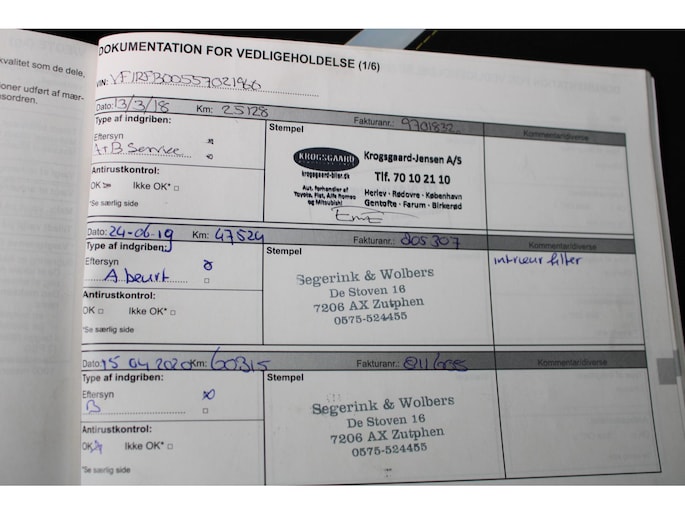 kvalitet som de dele,
ioner udført af mær-
esordren.
DOKUMENTATION FOR VEDLIGEHOLDELSE (1/6)
VIN: VF1RFB00557021960
Dato: 13/3/18 Km: 25128 Fakturanr.: 9701832 Kommentar/diverse
Type af indgriben:
Eftersyn
A+B Service
Antirustkontrol:
OK Ikke OK*
*Se særlig side
Stempel
KROGSGAARD
krogsgaard-biler.dk
Aut. forhandler af
Toyota, Fiat, Alfa Romeo
og Mitsubishi
Krogsgaard-Jensen A/S
Tlf. 70 10 21 10
Herlev · Rødovre · København
Gentofte · Farum · Birkerød
Dato: 24-06-19 Km: 47524 Fakturanr.: 805307 Kommentar/diverse
Type af indgriben:
Eftersyn
A beurt
Antirustkontrol:
OK Ikke OK*
*Se særlig side
Stempel
Segerink & Wolbers
De Stoven 16
7206 AX Zutphen
0575-524455
intrieur filter
Dato: 15 04 2020 Km: 60315 Fakturanr.: Kommentar/diverse
Type af indgriben:
Eftersyn
B
Antirustkontrol:
OK Ikke OK*
*Se særlig side
Stempel
Segerink & Wolbers
De Stoven 16
7206 AX Zutphen
0575-524455